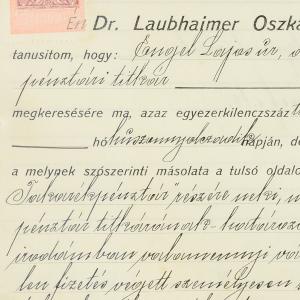 Én Dr. Laubhaimer Oszká
tanusitom, hogy: Engel Lajos úr, a
pénztári titkár
megkeresésére ma, azaz egyezerkilenczszáz
hó huszonnyolczadik napján, de
a melynek szószerinti másolata a tulsó oldalo
Takarékpénztár" részére neki, m
pénztár titkárának - határozo
irodámban valamennyi vál
len fizetés végett személyesen